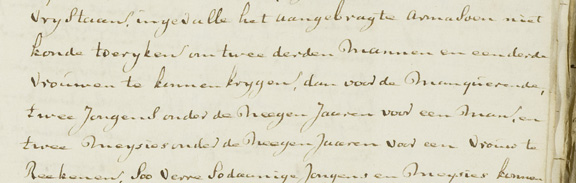 vry staan, ingevalle het aangebragte Armasoen niet
konde toeryken om twee derden Mannen en eenderde
Vrouwen te konnen krygen, dan voor de Manquerende,
twee Jongens onder de Neegen Jaaren voor een Man, en
twee Meysies onder de Neegen Jaaren voor een Vrouw te
Reekenen, Soo verre Sodaanige Jongens en Meysies konnen